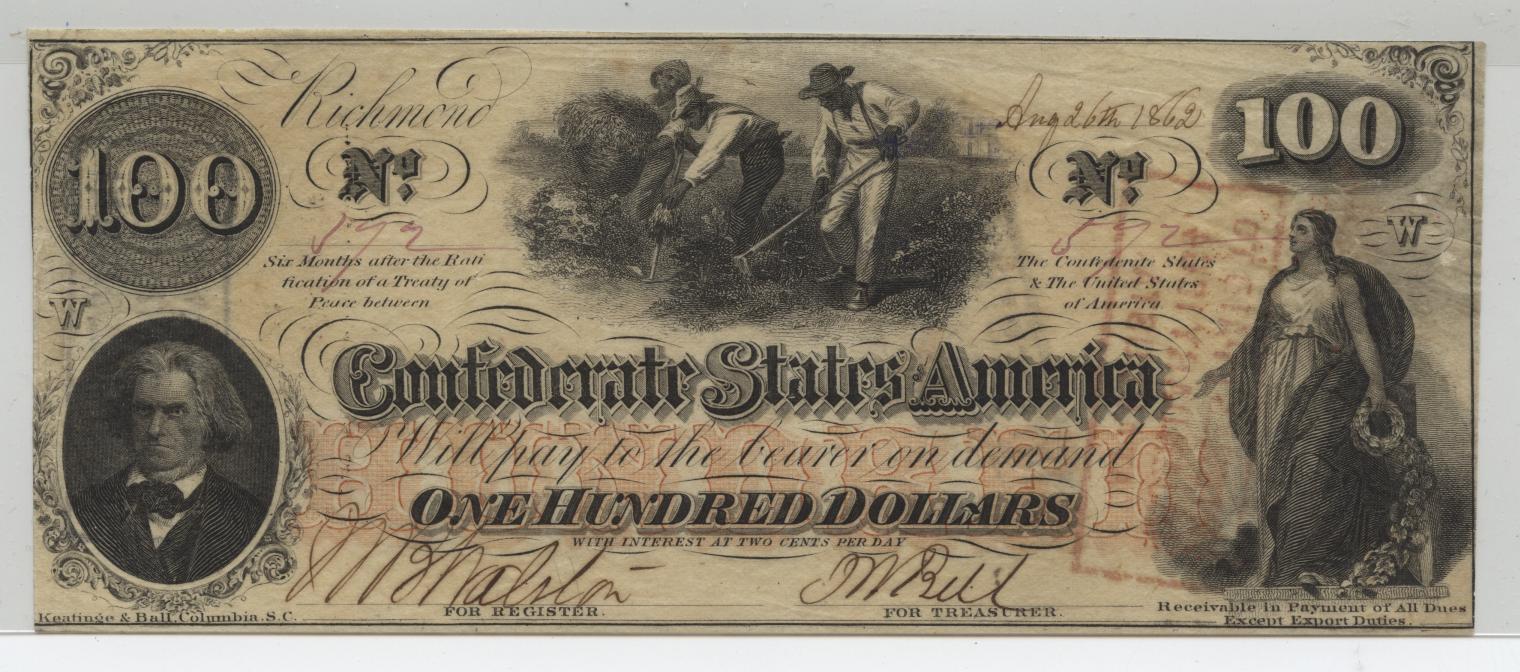 Richmond
Aug 26th 1862
100
100
No
No
592
592
W
Six Months after the Rati
fication of a Treaty of
Peace between
The Confederate States
& The United States
of America
W
Confederate States America
Will pay to the bearer on demand
HUNDRED
ONE HUNDRED DOLLARS
WITH INTEREST AT TWO CENTS PER DAY
FOR REGISTER.
FOR TREASURER.
Keatinge & Ball, Columbia, S.C.
Receivable in Payment of All Dues
Except Export Duties.